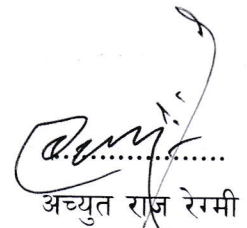 अच्युत राज रेग्मी